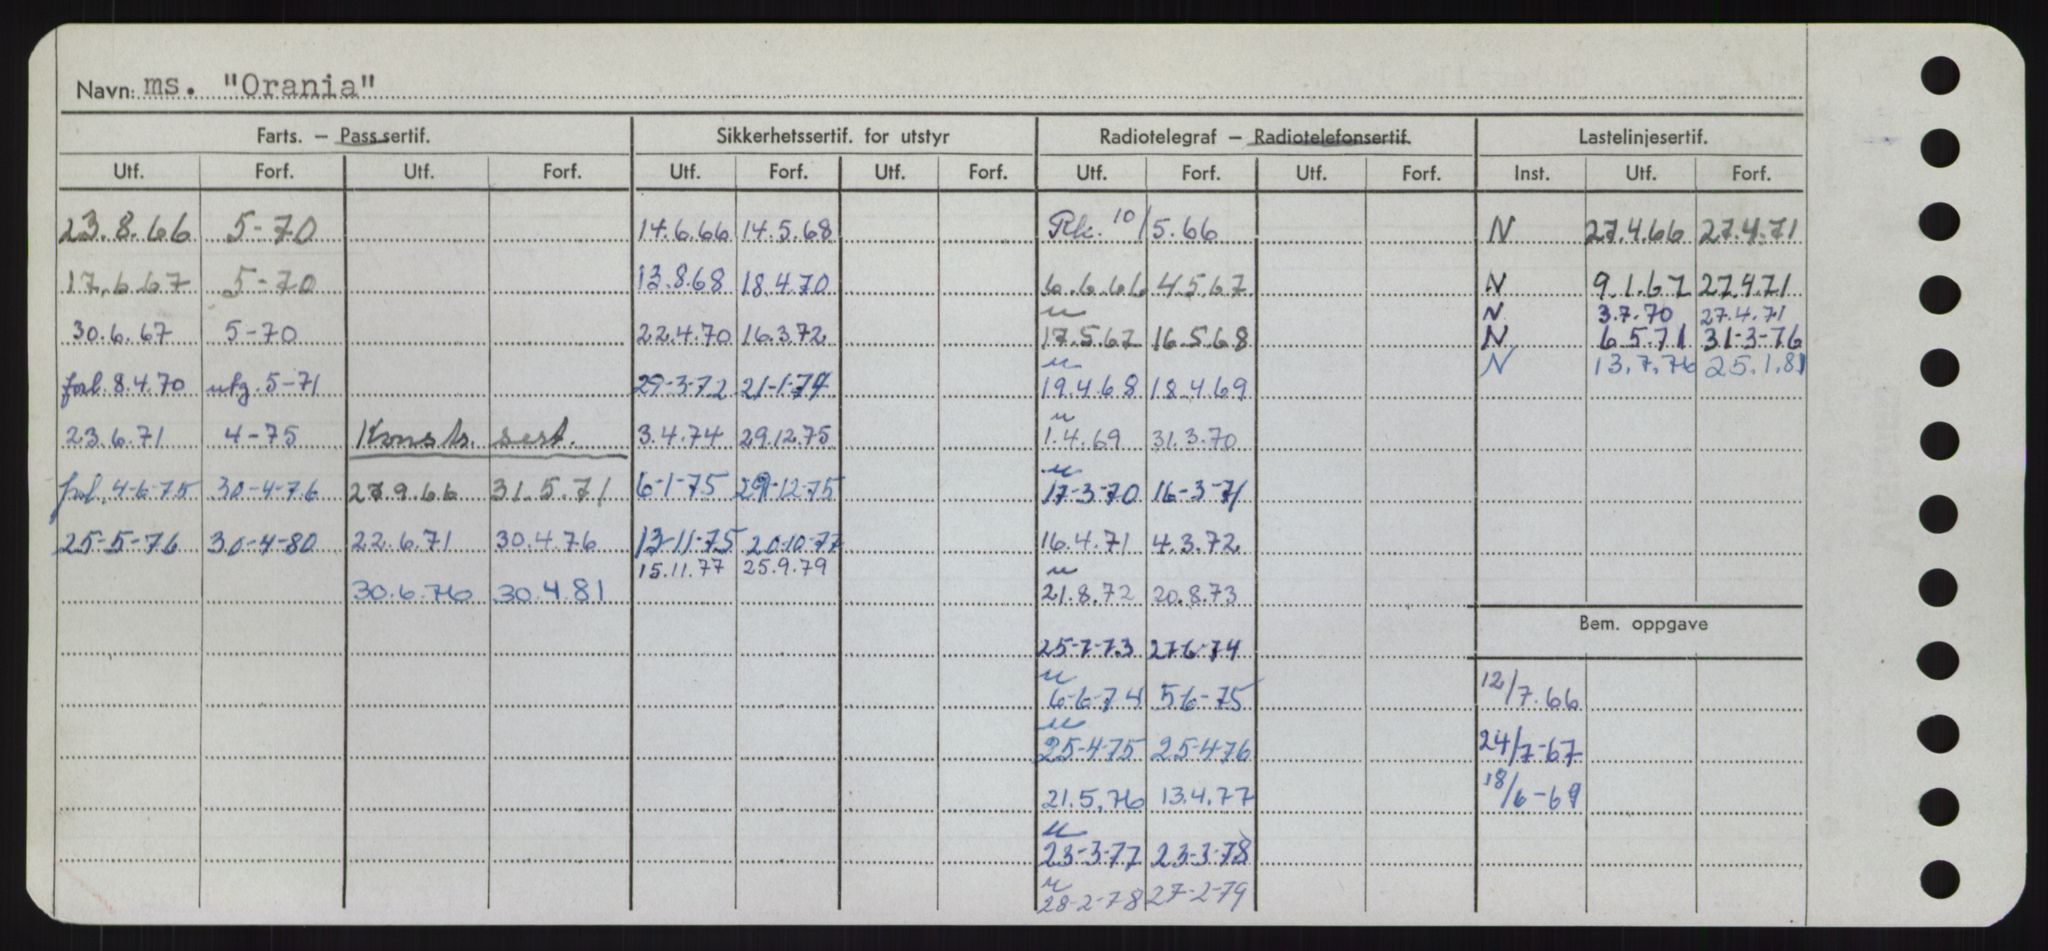 Navn: ms. "Orania"
Farts. — Passsertif. Sikkerhetssertif. for utstyr Radiotelegraf — Radiotelefonsertif. Lastelinjesertif.
Utf. Forf. Utf. Forf. Utf. Forf. Utf. Forf. Utf. Forf. Utf. Forf. Inst. Utf. Forf.
23.8.66 5-70 14.6.66 14.5.68 Rk. 10/5.66 N 27.4.66 27.4.71
17.6.67 5-70 13.8.68 18.4.70 6.6.66 4.5.67 N 9.1.67 27.4.71
u N 3.7.70 27.4.71
30.6.67 5-70 22.4.70 16.3.72 17.5.67 16.5.68 N 6.5.71 31-3-76
u N 13.7.76 25.1.81
forl. 8.4.70 utg. 5-71 29-3-72 21-1-74 19.4.68 18.4.69
u
23.6.71 4-75 Konstr. sert. 3.4.74 29.12.75 1.4.69 31.3.70
u
forl. 4-6-75 30-4-76 27.9.66 31.5.71 6-1-75 29-12-75 17-3-70 16-3-71
25-5-76 30-4-80 22.6.71 30.4.76 13-11-75 20-10-77 16.4.71 4.3.72
15.11.77 25.9.79 u
30.6.76 30.4.81 21.8.72 20.8.73
Bem. oppgave
25-7-73 27-6-74
u
6-6-74 5-6-75 12/7.66
u
25-4-75 25-4-76 24/7-67
21.5.76 13.4.77 18/6-69
u
23-3-77 23-3-78
u
28-2-78 27-2-79